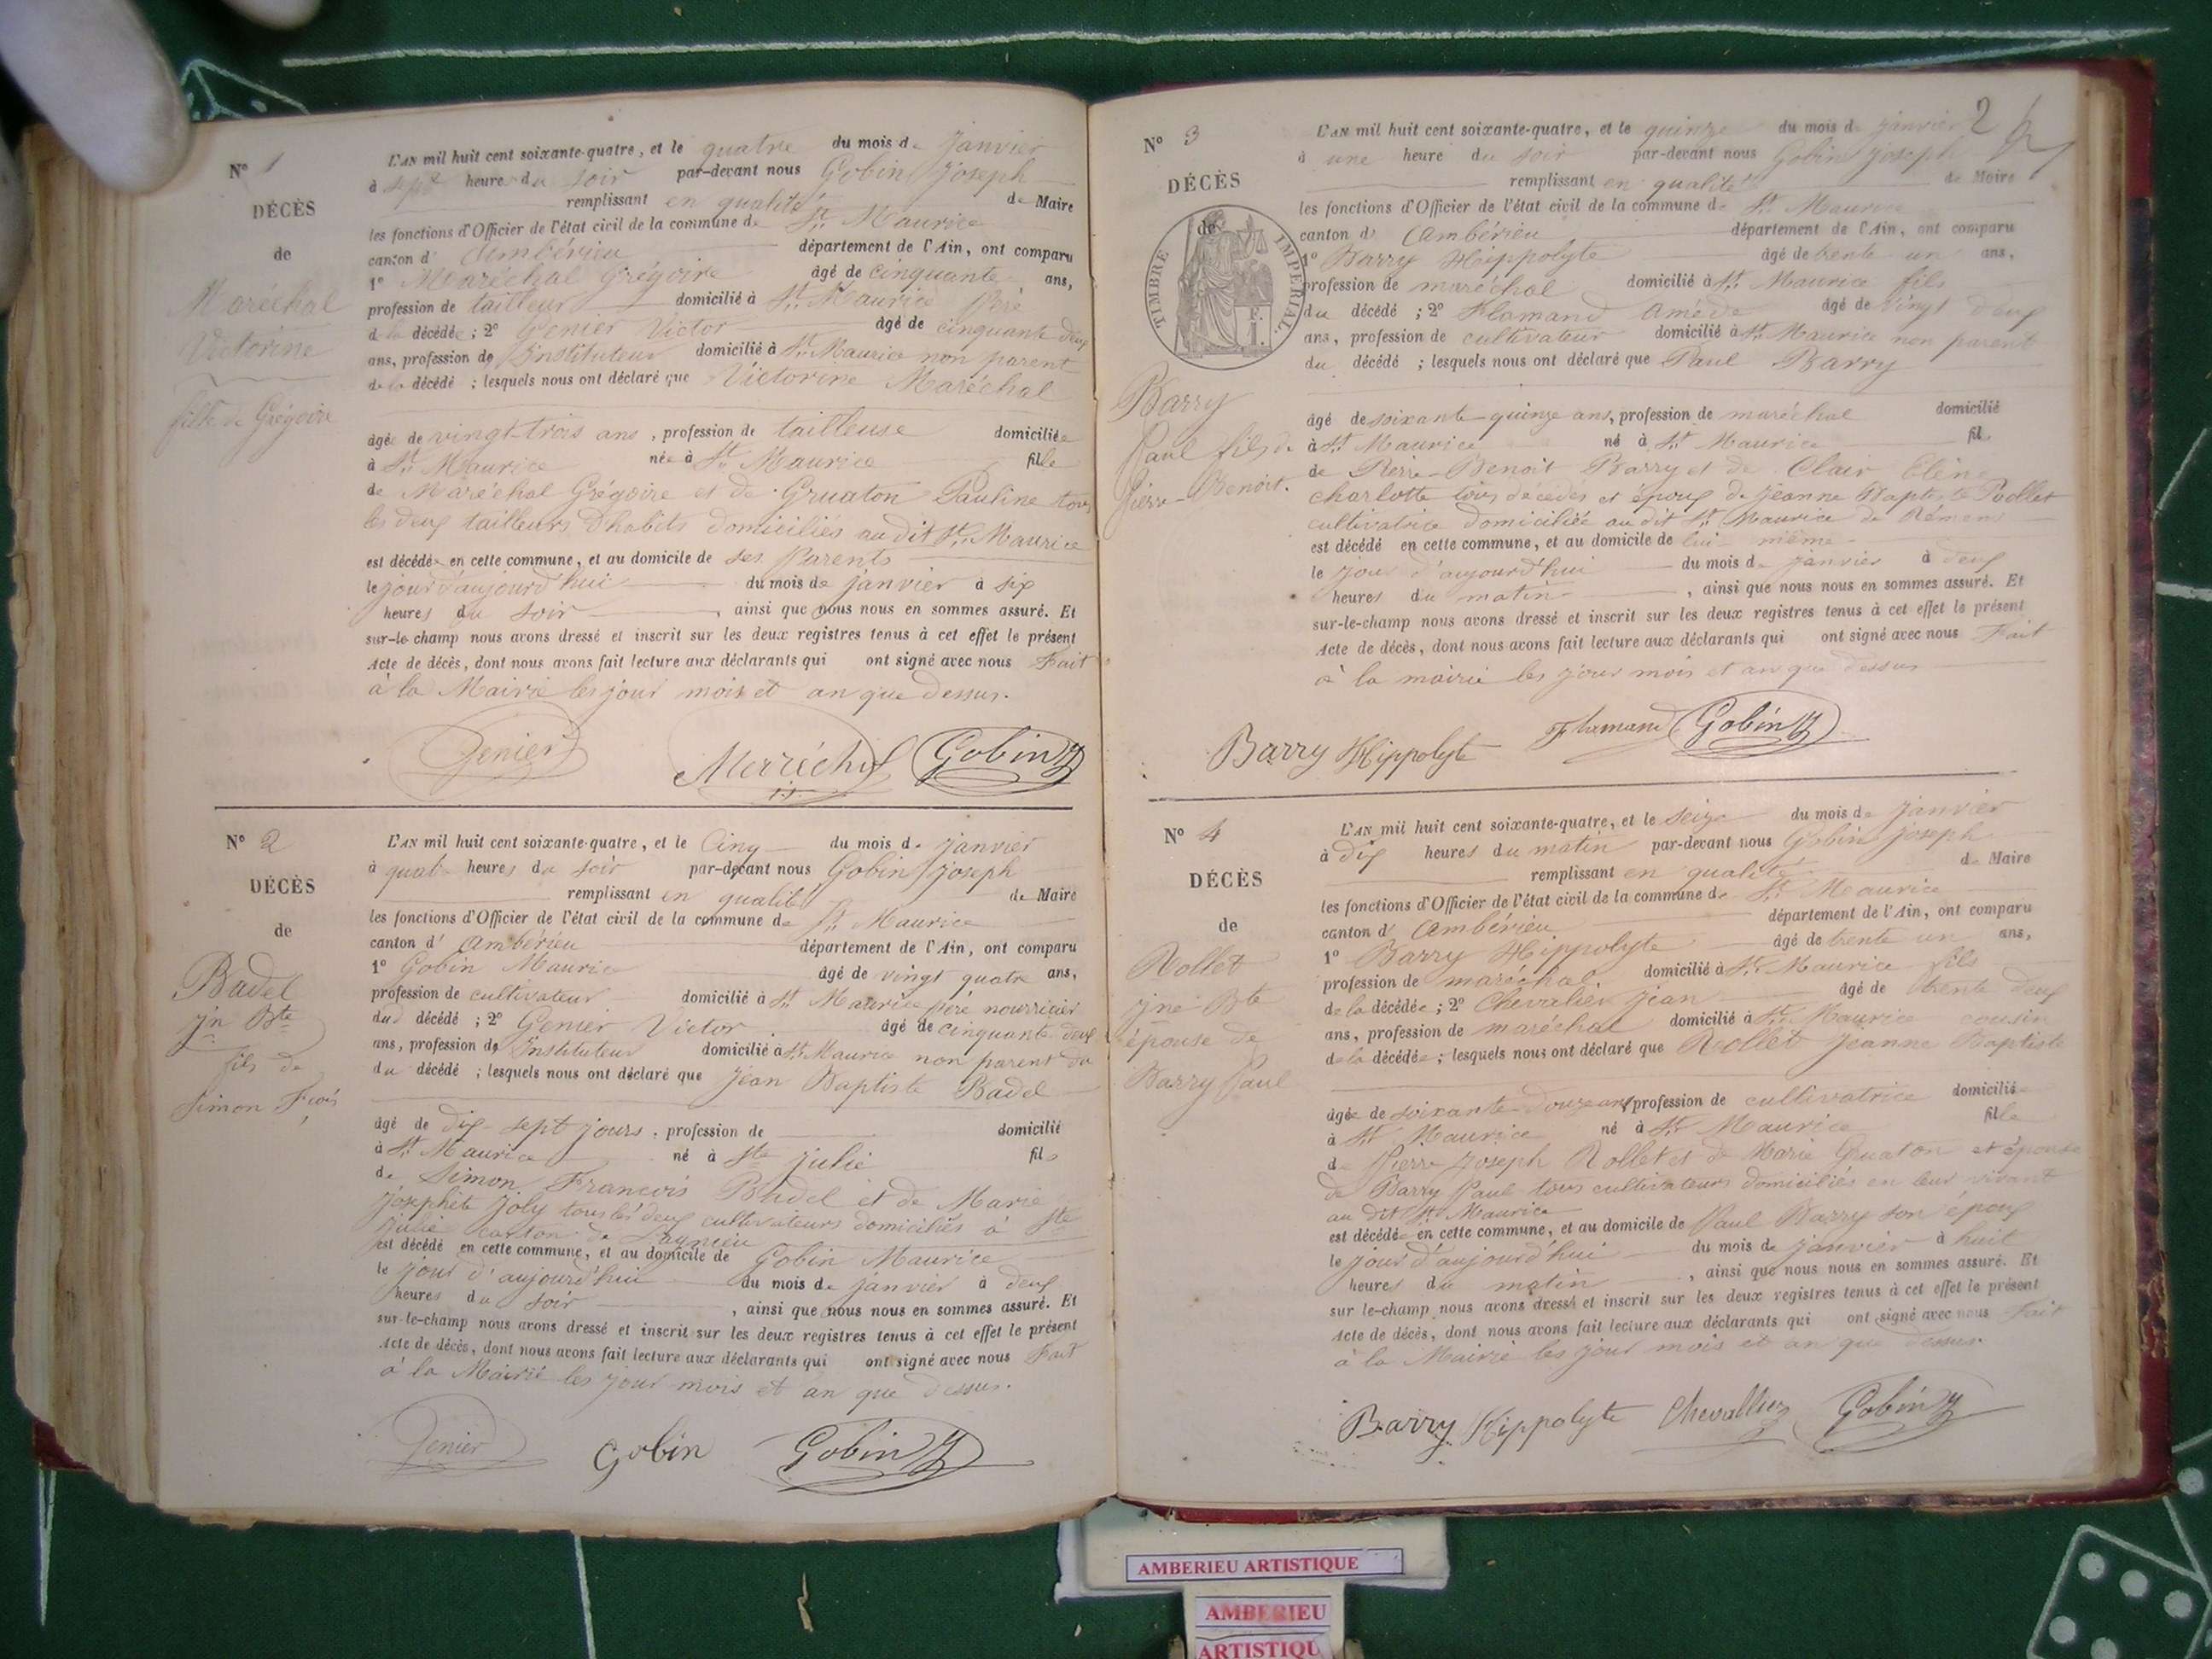 N° 1
DÉCÈS
de
Maréchal
Victorine
fille de Grégoire
L'AN mil huit cent soixante-quatre, et le quatre du mois de janvier
à sept heure du soir par-devant nous Gobin Joseph
remplissant en qualité de Maire
les fonctions d'Officier de l'état civil de la commune de St. Maurice
canton d' Ambérieu département de l'Ain, ont comparu
1° Maréchal Grégoire âgé de cinquante ans,
profession de tailleur domicilié à St. Maurice Père
de la décédée ; 2° Genier Victor âgé de cinquante deux
ans, profession de Instituteur domicilié à St. Maurice non parent
de la décédé ; lesquels nous ont déclaré que Victorine Maréchal
âgée de vingt-trois ans, profession de tailleuse domiciliée
à St. Maurice née à St. Maurice fille
de Maréchal Grégoire et de Gruaton Pauline tous
les deux tailleurs d'habits domiciliés au dit St. Maurice
est décédée en cette commune, et au domicile de ses Parents
le jour d'aujourd'hui du mois de janvier à six
heures du soir, ainsi que nous nous en sommes assuré. Et
sur-le-champ nous avons dressé et inscrit sur les deux registres tenus à cet effet le présent
Acte de décès, dont nous avons fait lecture aux déclarants qui ont signé avec nous Fait
à la Mairie les jour mois et an que dessus.
Genier Merréchal Gobin J
N° 2
DÉCÈS
de
Badel
Jn Bte
fils de
Simon Frois
L'AN mil huit cent soixante-quatre, et le Cinq du mois de janvier
à quatre heures du soir par-devant nous Gobin Joseph
remplissant en qualité de Maire
les fonctions d'Officier de l'état civil de la commune de St. Maurice
canton d' Ambérieu département de l'Ain, ont comparu
1° Gobin Maurice âgé de vingt quatre ans,
profession de cultivateur domicilié à St. Maurice père nourricier
dud décédé ; 2° Genier Victor âgé de cinquante deux
ans, profession de Instituteur domicilié à St. Maurice non parent du
du décédé ; lesquels nous ont déclaré que Jean Baptiste Badel
âgé de dix-sept jours, profession de domicilié
à St. Maurice né à Ste Julie fils
de Simon Francois Badel et de Marie
Josephète Joly tous les deux cultivateurs domiciliés à Ste
Julie canton de Lagnieu
est décédé en cette commune, et au domicile de Gobin Maurice
le jour d'aujourd'hui du mois de janvier à deux
heures du soir, ainsi que nous nous en sommes assuré. Et
sur-le-champ nous avons dressé et inscrit sur les deux registres tenus à cet effet le présent
Acte de décès, dont nous avons fait lecture aux déclarants qui ont signé avec nous Fait
à la Mairie les jour mois et an que dessus.
Genier Gobin Gobin J
2
N° 3
DÉCÈS
de
TIMBRE IMPÉRIAL.
1 F.
Barry
Paul fils de
Pierre-Benoit.
L'AN mil huit cent soixante-quatre, et le quinze du mois de janvier
à une heure du soir par-devant nous Gobin Joseph
remplissant en qualité de Maire
les fonctions d'Officier de l'état civil de la commune de St. Maurice
canton d' Ambérieu département de l'Ain, ont comparu
1° Barry Hippolyte âgé de trente un ans,
profession de maréchal domicilié à St. Maurice fils
du décédé ; 2° Flamand Amédé âgé de vingt deux
ans, profession de cultivateur domicilié à St. Maurice non parent
du décédé ; lesquels nous ont déclaré que Paul Barry
âgé de soixante-quinze ans, profession de maréchal domicilié
à St. Maurice né à St. Maurice fils
de Pierre-Benoit Barry et de Clair Elène
charlotte tous décédés et époux de Jeanne Baptiste Rollet
cultivatrice domiciliée au dit St. Maurice de Rémens
est décédé en cette commune, et au domicile de lui même
le jour d'aujourd'hui du mois de janvier à deux
heures du matin, ainsi que nous nous en sommes assuré. Et
sur-le-champ nous avons dressé et inscrit sur les deux registres tenus à cet effet le présent
Acte de décès, dont nous avons fait lecture aux déclarants qui ont signé avec nous Fait
à la mairie les jour mois et an que dessus
Barry Hippolyte Flamand Gobin J
N° 4
DÉCÈS
de
Rollet
Jne-Bte
épouse de
Barry Paul
L'AN mil huit cent soixante-quatre, et le seize du mois de janvier
à dix heures du matin par-devant nous Gobin Joseph
remplissant en qualité de Maire
les fonctions d'Officier de l'état civil de la commune de St. Maurice
canton d' Ambérieu département de l'Ain, ont comparu
1° Barry Hippolyte âgé de trente un ans,
profession de maréchal domicilié à St. Maurice fils
de la décédée ; 2° Chevalier Jean âgé de trente deux
ans, profession de maréchal domicilié à St. Maurice cousin
de la décédée ; lesquels nous ont déclaré que Rollet Jeanne Baptiste
âgée de soixante-douze ans profession de cultivatrice domiciliée
à St. Maurice né à St. Maurice fille
de Pierre Joseph Rollet et de Marie Gruaton et épouse
de Barry Paul tous cultivateurs domiciliés en leur vivant
au dit St. Maurice
est décédée en cette commune, et au domicile de Paul Barry son époux
le jour d'aujourd'hui du mois de janvier à huit
heures du matin, ainsi que nous nous en sommes assuré. Et
sur le-champ nous avons dressé et inscrit sur les deux registres tenus à cet effet le présent
Acte de décès, dont nous avons fait lecture aux déclarants qui ont signé avec nous Fait
à la Mairie les jour mois et an que dessus.
Barry Hippolyte Chevallier Gobin J
AMBERIEU ARTISTIQUE
AMBERIEU
ARTISTIQU